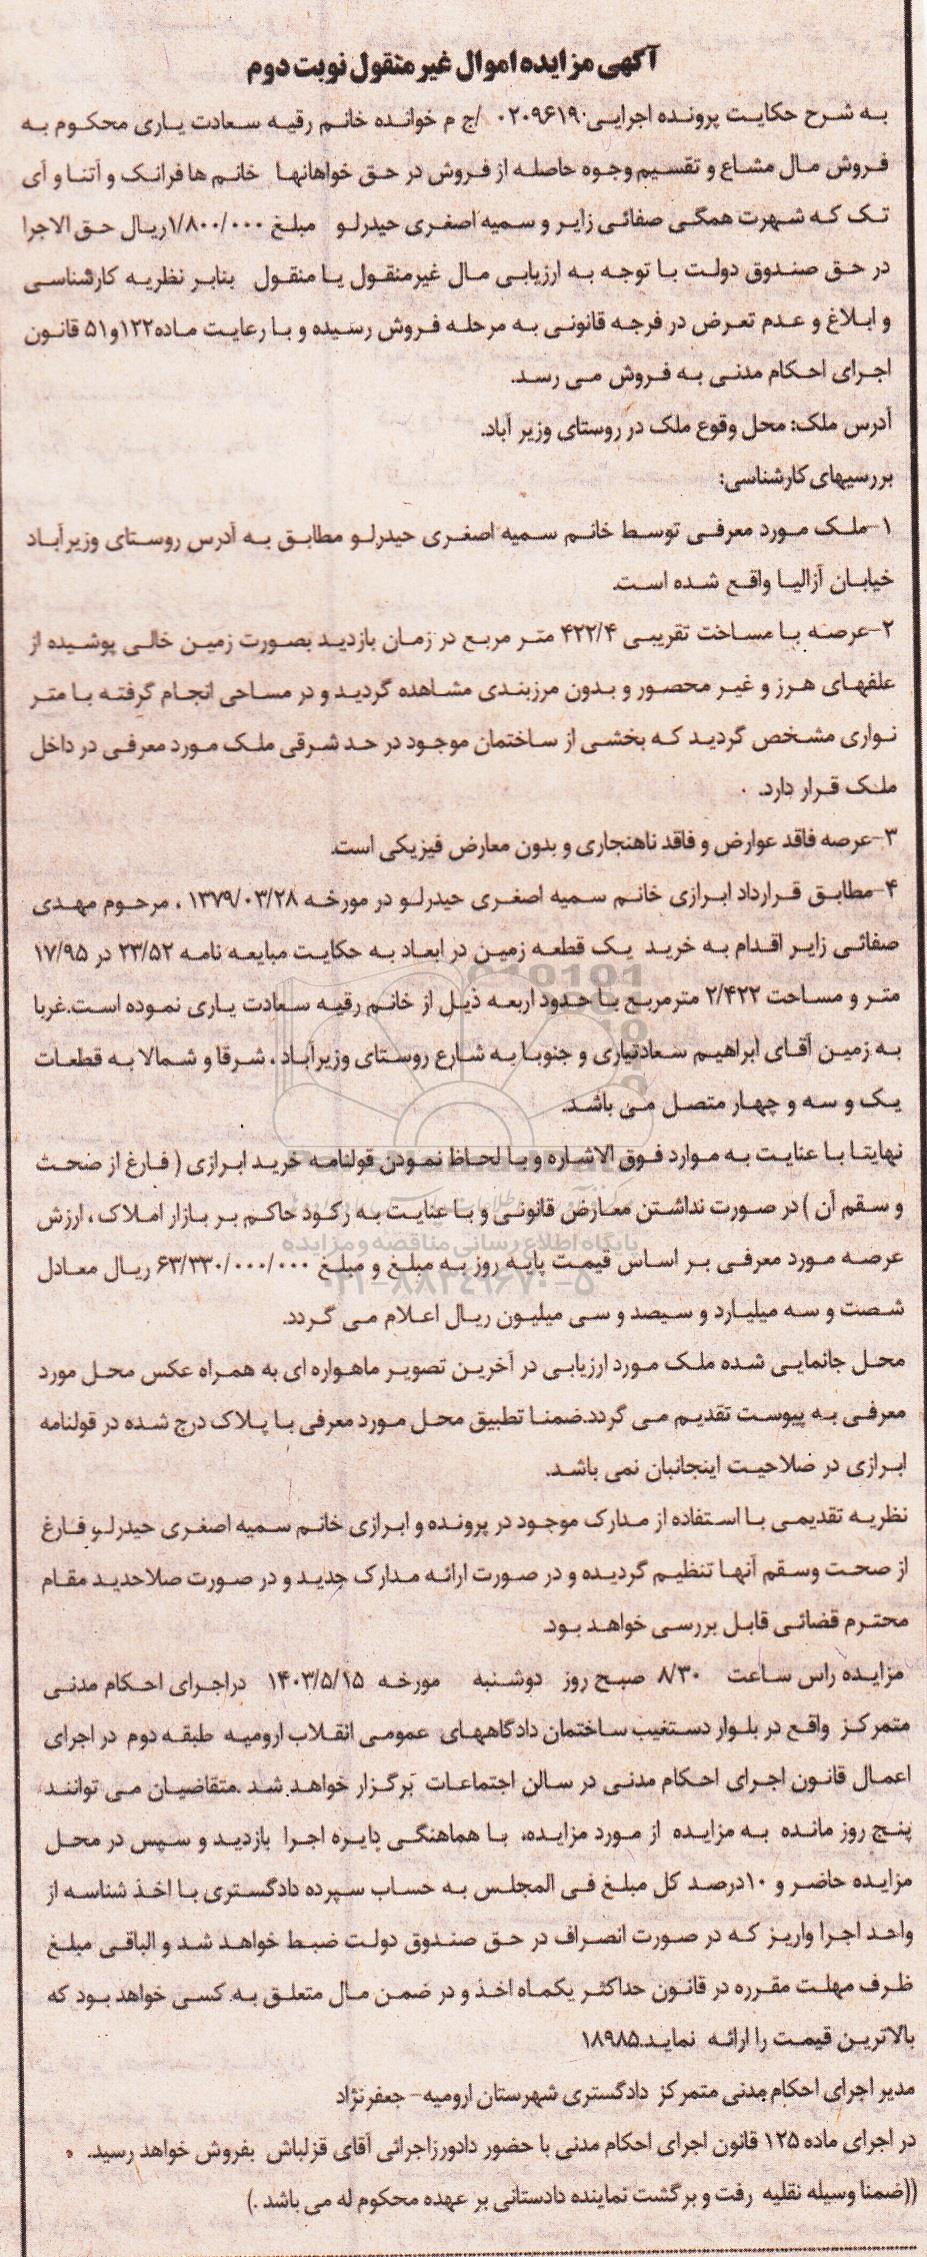 آگهی مزایده اموال غیر منقول نوبت دوم
به شرح حکایت پرونده اجرایی ۰۲۰۹۶۱۹۰ /ج م خوانده خانم رقیه سعادت یاری محکوم به
فروش مال مشاع و تقسیم وجوه حاصله از فروش در حق خواهانها خانم ها فرانک و آتنا و آی
تک که شهرت همگی صفائی زایر و سمیه اصغری حیدرلو مبلغ ۱/۸۰۰/۰۰۰ریال حق الاجرا
در حق صندوق دولت با توجه به ارزیابی مال غیرمنقول یا منقول بنابر نظریه کارشناسی
و ابلاغ و عدم تعرض در فرجه قانونی به مرحله فروش رسیده و با رعایت ماده۱۲۲و۵۱ قانون
اجرای احکام مدنی به فروش می رسد.
آدرس ملک: محل وقوع ملک در روستای وزیر آباد.
بررسیهای کارشناسی:
۱-ملک مورد معرفی توسط خانم سمیه اصغری حیدرلو مطابق به آدرس روستای وزیرآباد
خیابان آزالیا واقع شده است.
۲-عرصه با مساخت تقریبی ۴۲۲/۴ متر مربع در زمان بازدید بصورت زمین خالی پوشیده از
علفهای هرز و غیر محصور و بدون مرزبندی مشاهده گردید و در مساحی انجام گرفته با متر
نواری مشخص گردید که بخشی از ساختمان موجود در حد شرقی ملک مورد معرفی در داخل
ملک قرار دارد.
۳-عرصه فاقد عوارض و فاقد ناهنجاری و بدون معارض فیزیکی است.
۴-مطابق قرارداد ابرازی خانم سمیه اصغری حیدرلو در مورخه ۱۳۷۹/۰۳/۲۸ ، مرحوم مهدی
صفائی زایر اقدام به خرید یک قطعه زمین در ابعاد به حکایت مبایعه نامه ۲۳/۵۲ در ۱۷/۹۵
متر و مساحت ۲/۴۲۲ مترمربع با حدود اربعه ذیل از خانم رقیه سعادت یاری نموده است.غربا
به زمین آقای ابراهیم سعادتیاری و جنوبا به شارع روستای وزیرآباد ، شرقا و شمالا به قطعات
یک و سه و چهار متصل می باشد.
نهایتا با عنایت به موارد فوق الاشاره و با لحاظ نمودن قولنامه خرید ابرازی ( فارغ از ضحث
و سقم آن ) در صورت نداشتن معارض قانونی و با عنایت به رکود حاکم بر بازار املاک ، ارزش
پایگاه اطلاع رسانی مناقصه و مزایده
عرصه مورد معرفی بر اساس قیمت پایه روز به مبلغ و مبلغ ۶۳/۳۳۰/۰۰۰/۰۰۰ ریال معادل
۰۲۱-۸۸۳۴۹۶۷۰-۵
شصت و سه میلیارد و سیصد و سی میلیون ریال اعلام می گردد.
محل جانمایی شده ملک مورد ارزیابی در آخرین تصویر ماهواره ای به همراه عکس محل مورد
معرفی به پیوست تقدیم می گردد.ضمنا تطبیق محل مورد معرفی با پلاک درج شده در قولنامه
ابرازی در صلاحیت اینجانبان نمی باشد.
نظریه تقدیمی با استفاده از مدارک موجود در پرونده و ابرازی خانم سمیه اصغری حیدرلو فارغ
از صحت وسقم آنها تنظیم گردیده و در صورت ارائه مدارک جدید و در صورت صلاحدید مقام
محترم قضائی قابل بررسی خواهد بود.
مزایده راس ساعت ۸/۳۰ صبح روز دوشنبه مورخه ۱۴۰۳/۵/۱۵ دراجرای احکام مدنی
متمرکز واقع در بلوار دستغیب ساختمان دادگاههای عمومی انقلاب ارومیه طبقه دوم در اجرای
اعمال قانون اجرای احکام مدنی در سالن اجتماعات برگزار خواهد شد .متقاضیان می توانند
پنج روز مانده به مزایده از مورد مزایده، با هماهنگی دایره اجرا بازدید و سپس در محل
مزایده حاضر و ۱۰درصد کل مبلغ فی المجلس به حساب سپرده دادگستری با اخذ شناسه از
واحد اجرا واریز که در صورت انصراف در حق صندوق دولت ضبط خواهد شد و الباقی مبلغ
ظرف مهلت مقرره در قانون حداکثر یکماه اخذ و در ضمن مال متعلق به کسی خواهد بود که
بالاترین قیمت را ارائه نماید.۱۸۹۸۵
مدیر اجرای احکام مدنی متمرکز دادگستری شهرستان ارومیه- جعفرنژاد
در اجرای ماده ۱۲۵ قانون اجرای احکام مدنی با حضور دادورزاجرائی آقای قزلباش بفروش خواهد رسید.
((ضمنا وسیله نقلیه رفت و برگشت نماینده دادستانی بر عهده محکوم له می باشد .)